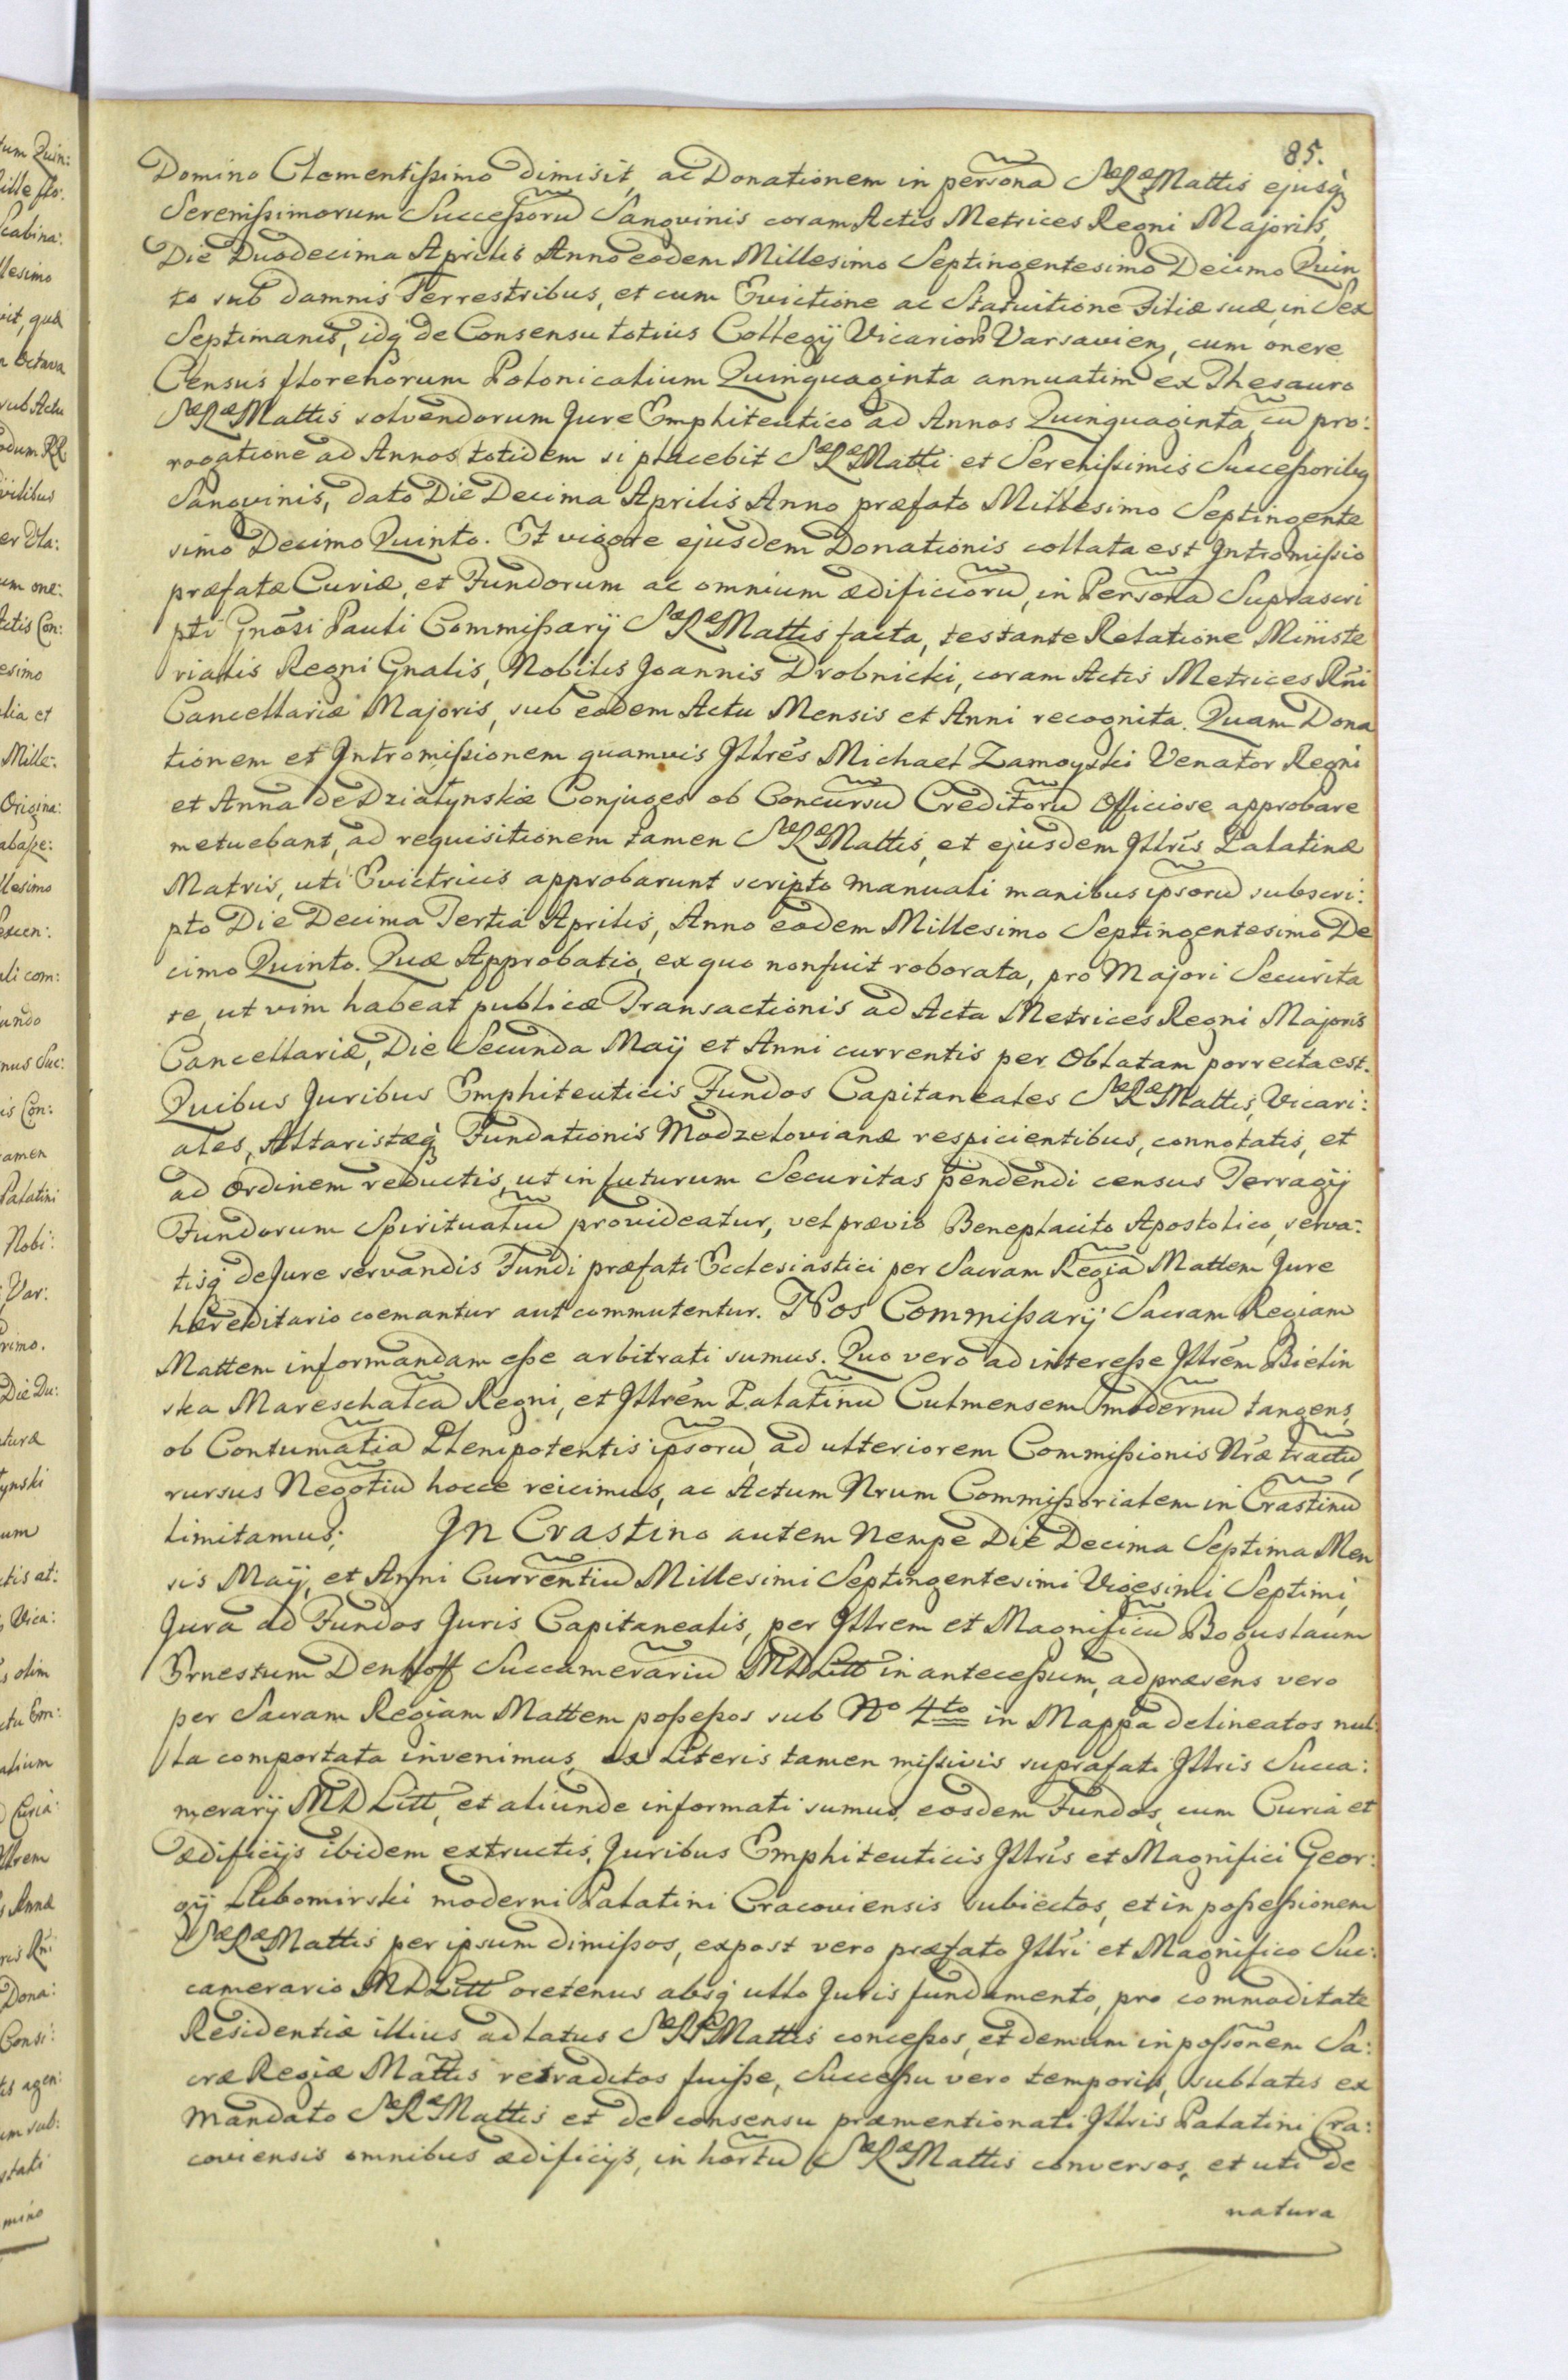 85.
Domino Clementißimo dimisit, ac Donationem in persona SæRæMattis ejusq̃
Serenißimorum Succeßorũ Sangvinis coram Actis Metrices Regni Majoris,
Die Duodecima Aprilis Anno eodem Millesimo Septingentesimo Decimo Quin
to sub damnis Terrestribus, et cum Evictione ac Statuitione Filiæ suæ, in Sex
Septimanis, idq̃ de Consensu totius Collegÿ Vicariorũ Varsavien, cum onere
Census florenorum Polonicalium Quinquaginta annuatim ex Thesauro
SæRæMattis solvendorum Jure Emphiteutico ad Annos Quinquaginta, cũ pro:
rogatione ad Annos totidem si placebit SæRæMatti et Serenißimis Succeßoribq
Sangvinis, dato Die Decima Aprilis Anno præfato Millesimo Septingente
simo Decimo Quinto. Et vigore ejusdem Donationis collata est Intromißio
præfatæ Curiæ, et Fundorum ac omnium ædificiorũ, in Persona Suprascri
pti Gnõsi Pauli Commißarÿ SæRæMattis facta, testante Relatione Ministe
rialis Regni Gnalis, Nobilis Joannis Drobnicki, coram Actis Metrices Rñi
Cancellariæ Majoris, sub eodem Actu Mensis et Anni recognita. Quam Dona
tionem et Intromißionem quamvis Jllrẽs Michael Zamoyski Venator Regni
et Anna de Dziatynskie Conjuges ob Concursũ Creditorũ Officiose approbare
metuebant, ad requisitionem tamen SæRæMattis, et ejusdem Jllrĩs Palatinæ
Matris, uti Evictricis approbarunt scripto manuali manibus ipsorũ subscri:
pto Die Decima Tertia Aprilis, Anno eodem Millesimo Septingentesimo De
cimo Quinto. Quæ Approbatio, ex quo non fuit roborata, pro Majori Securita
te, ut vim habeat publicæ Transactionis ad Acta Metrices Regni Majoris
Cancellariæ, Die Secunda Maÿ et Anni currentis per Oblatam porrecta est.
Quibus Juribus Emphiteuticis Fundos Capitaneales SæRæMattis, Vicari:
ales, Altaristæq̃ Fundationis Modzelovianæ respicientibus, connotatis, et
ad Ordinem reductis, ut in futurum Securitas pendendi census Terragÿ
Fundorum Spiritualiũ provideatur, vel prævio Beneplacito Apostolico, serva:
tisq̃ de Jure servandis Fundi præfati Ecclesiastici per Sacram Regiã Mattem Jure
hæreditario coemantur aut commutentur. Nos Commißarÿ Sacram Regiam
Mattem informandam eße arbitrati sumus. Quo vero ad intereße Jllrẽm Bielin
ska Mareschalcã Regni, et Jllrẽm Palatinũ Culmensem modernũ tangens,
ob Contumatiã Plenipotentis ipsorũ, ad ulteriorem Commißionis Nr̃æ tractũ,
rursus Negotiũ hocce reicimus, ac Actum Nrum Commißorialem in Crastinũ
limitamus; In Crastino autem Nempe Die Decima Septima Men
sis Maÿ, et Anni Currentiũ Millesimi Septingentesimi Vigesimi Septimi,
Jura ad Fundos Juris Capitanealis, per Jllrem et Magnificũ Boguslaum
Ernestum Denhoff Succamerariũ MDLitt in anteceßum, ad præsens vero
per Sacram Regiam Mattem poßeßos sub No 4to in Mappa delineatos nul
la comportata invenimus, ex Literis tamen mißivis suprafati Jllris Succa:
merarÿ MDLitt, et aliunde informati sumus, eosdem Fundos, cum Curia et
ædificÿs ibidem extructis, Juribus Emphiteuticis Jllrĩs et Magnifici Geor:
gÿ Lubomirski moderni Palatini Cracoviensis subiectos, et in poßeßionem
SæRæMattis per ipsum dimißos, expost vero præfato Jllrĩ et Magnifico Suc:
camerario MDLitt oretenus absq̃ ullo Juris fundamento, pro commoditate
Residentiæ illius ad latus SæRæMattis conceßos, et demum in poßonem Sa:
cræ Regiæ Mattis retraditos fuiße, Succeßu vero temporis, sublatis ex
mandato SæRæMattis et de consensu præmentionati Jllris Palatini Cra:
coviensis omnibus ædificÿs, in hortũ SæRæMattis conversos, et uti de
natura